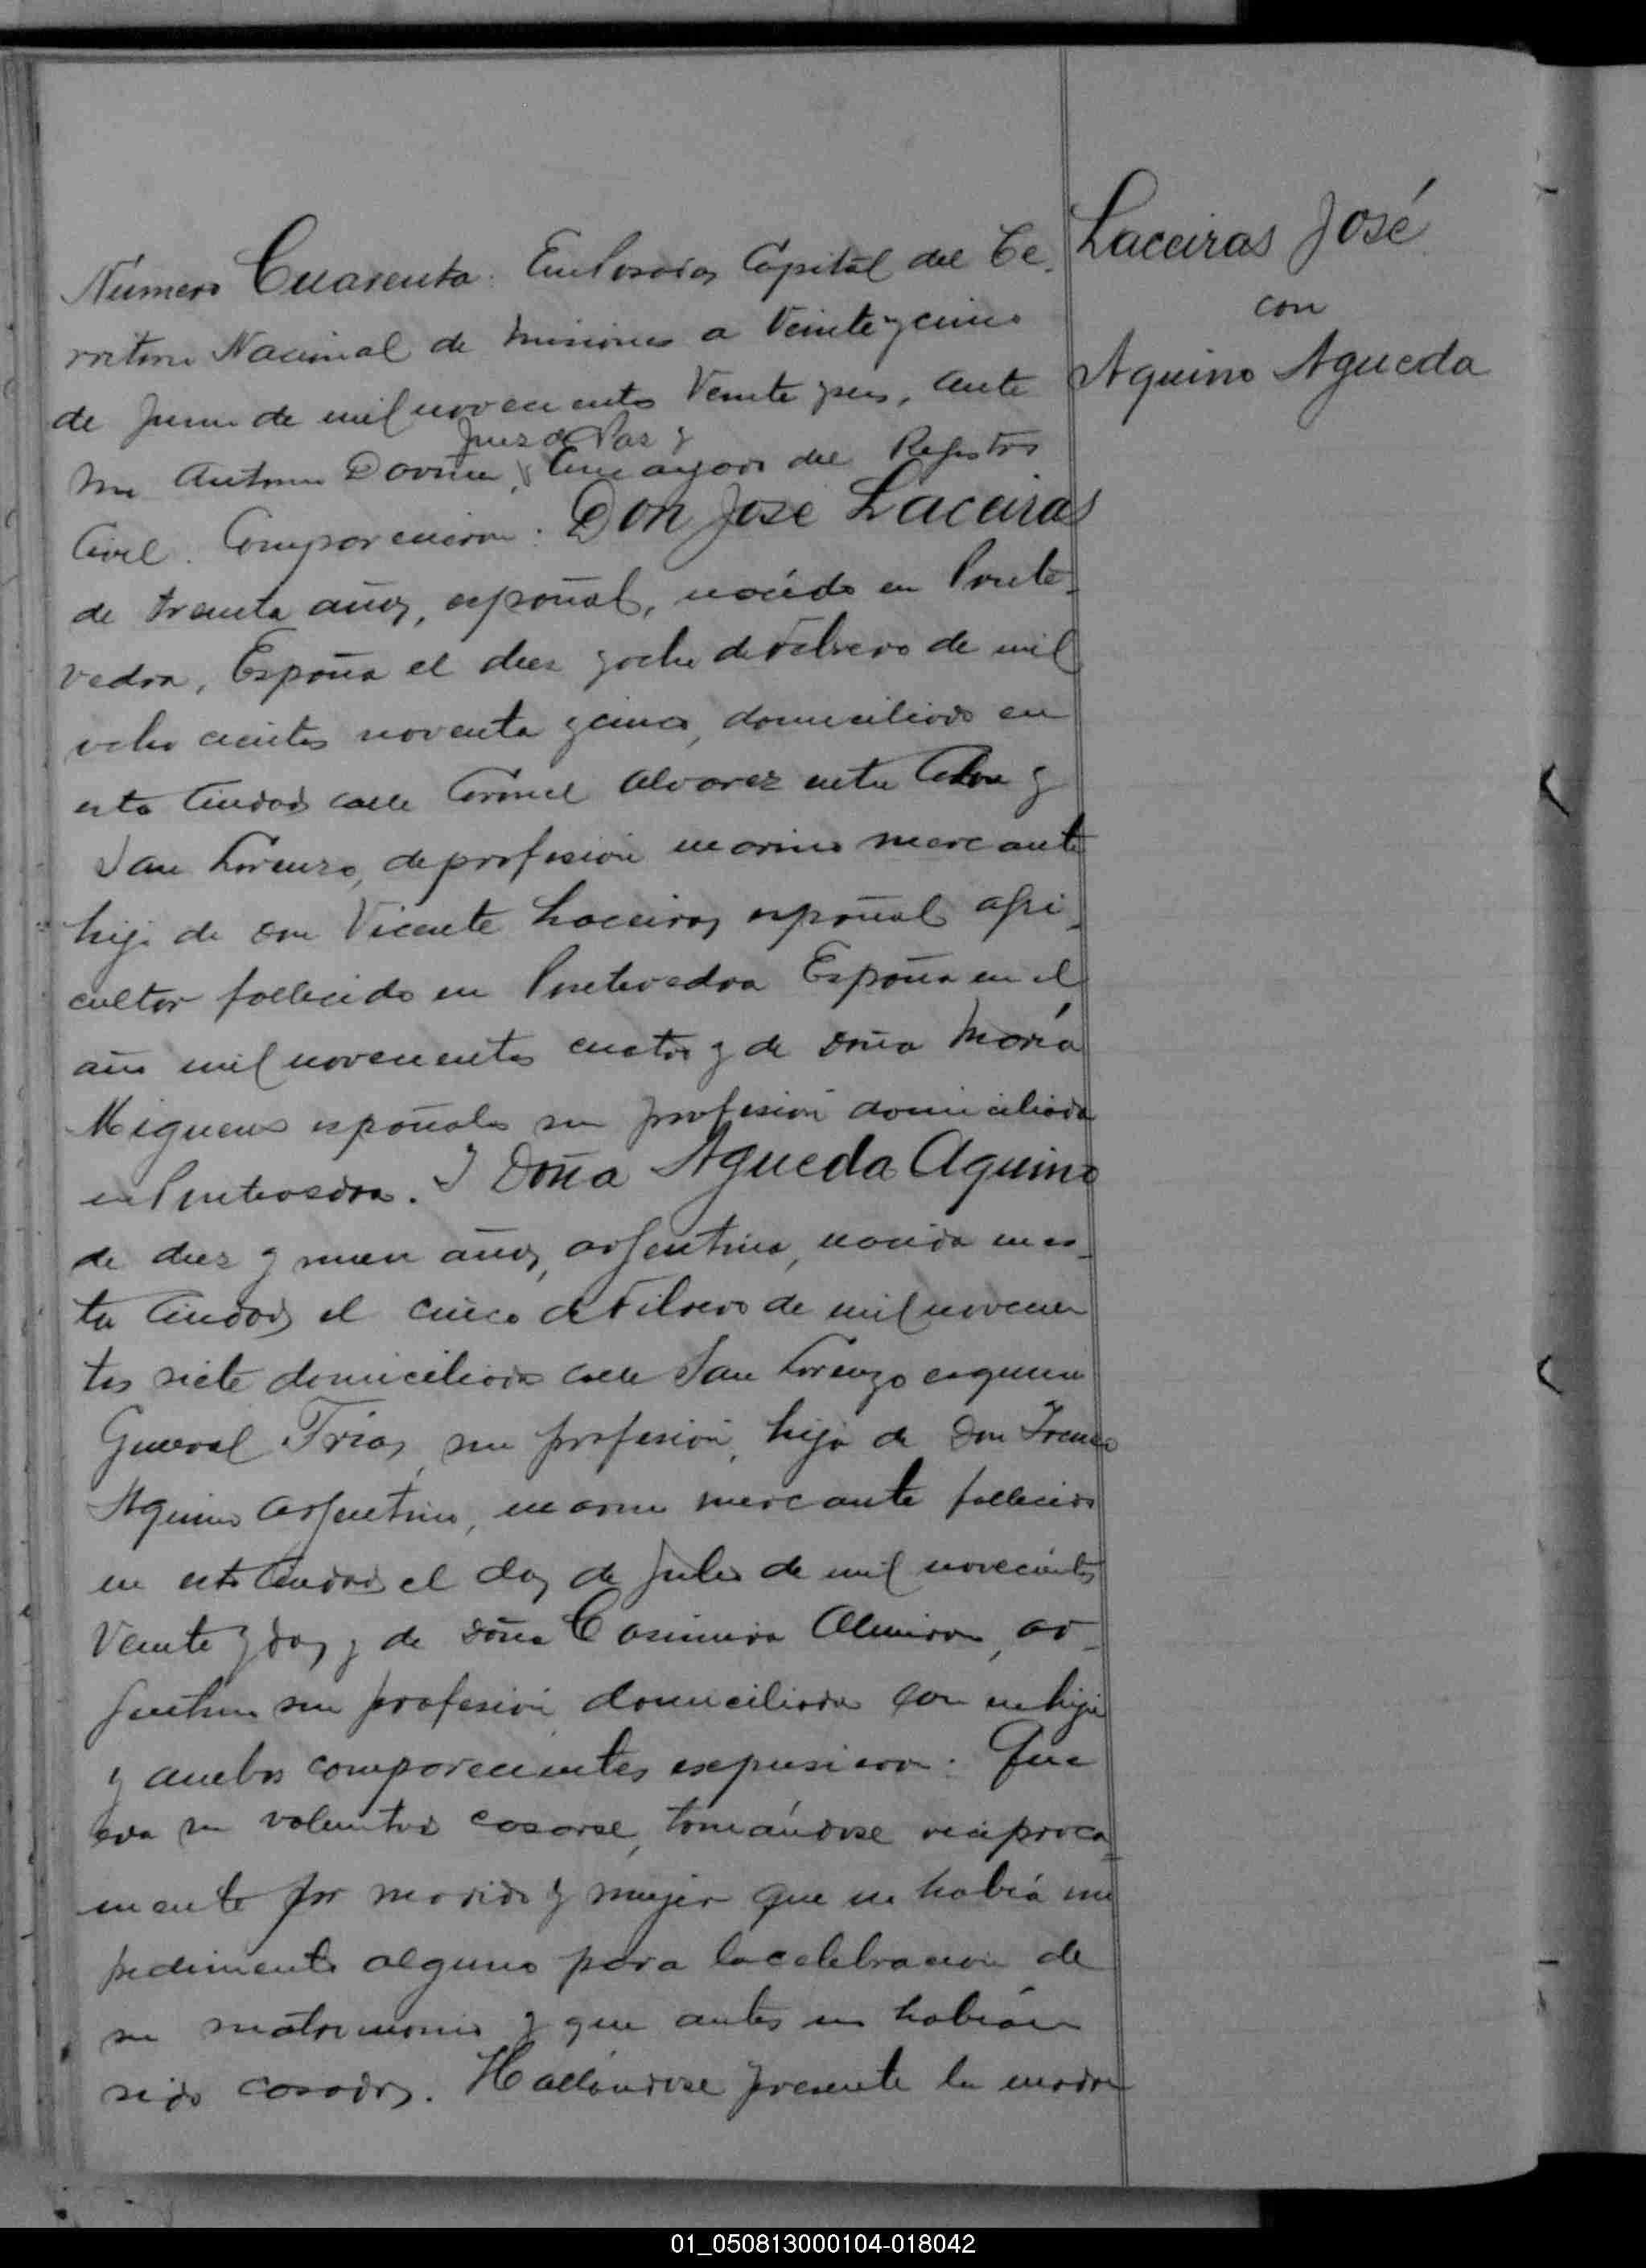 Laceiras José
con
Aquino Agueda
Número Cuarenta: En Posadas Capital del Te-
rritorio Nacional de Misiones a Veinte y cinco
de Junio de mil novecientos Veinte y seis, ante
Juez de Paz y
mi Antonio Encargado del Registro
Civil. Comparecieron: Don José Laceiras
de treinta años, español, nacido en Ponte-
vedra, España el diez y ocho de Febrero de mil
ocho cientos noventa y cinco, domiciliado en
esta Ciudad calle Coronel Alvarez entre Colon y
San Lorenzo, de profesión marino mercante
hijo de don Vicente Laceiras español agri-
cultor fallecido en Pontevedra España en el
año mil novecientos cuatro y de doña María
Miguens española sin profesión domiciliada
en Pontevedra. Y Doña Agueda Aquino
de diez y nueve años, argentina, nacida en es-
ta Ciudad el cinco de Febrero de mil novecien
tos siete domiciliada calle San Lorenzo esquina
General Frias, sin profesión, hija de Don Ireneo
Aquino argentino, marino mercante fallecido
en esta Ciudad el dos de Julio de mil novecientos
Veinte y dos y de doña Casimira Almiron, ar-
gentina sin profesión domiciliada con su hija
y ambos comparecientes expusieron: Que
era su voluntad casarse, tomándose recíproca-
mente por marido y mujer que no había im
pedimento alguno para la celebración de
su matrimonio y que antes no habían
sido casados. Hallándose presente la madre
01_050813000104-018042